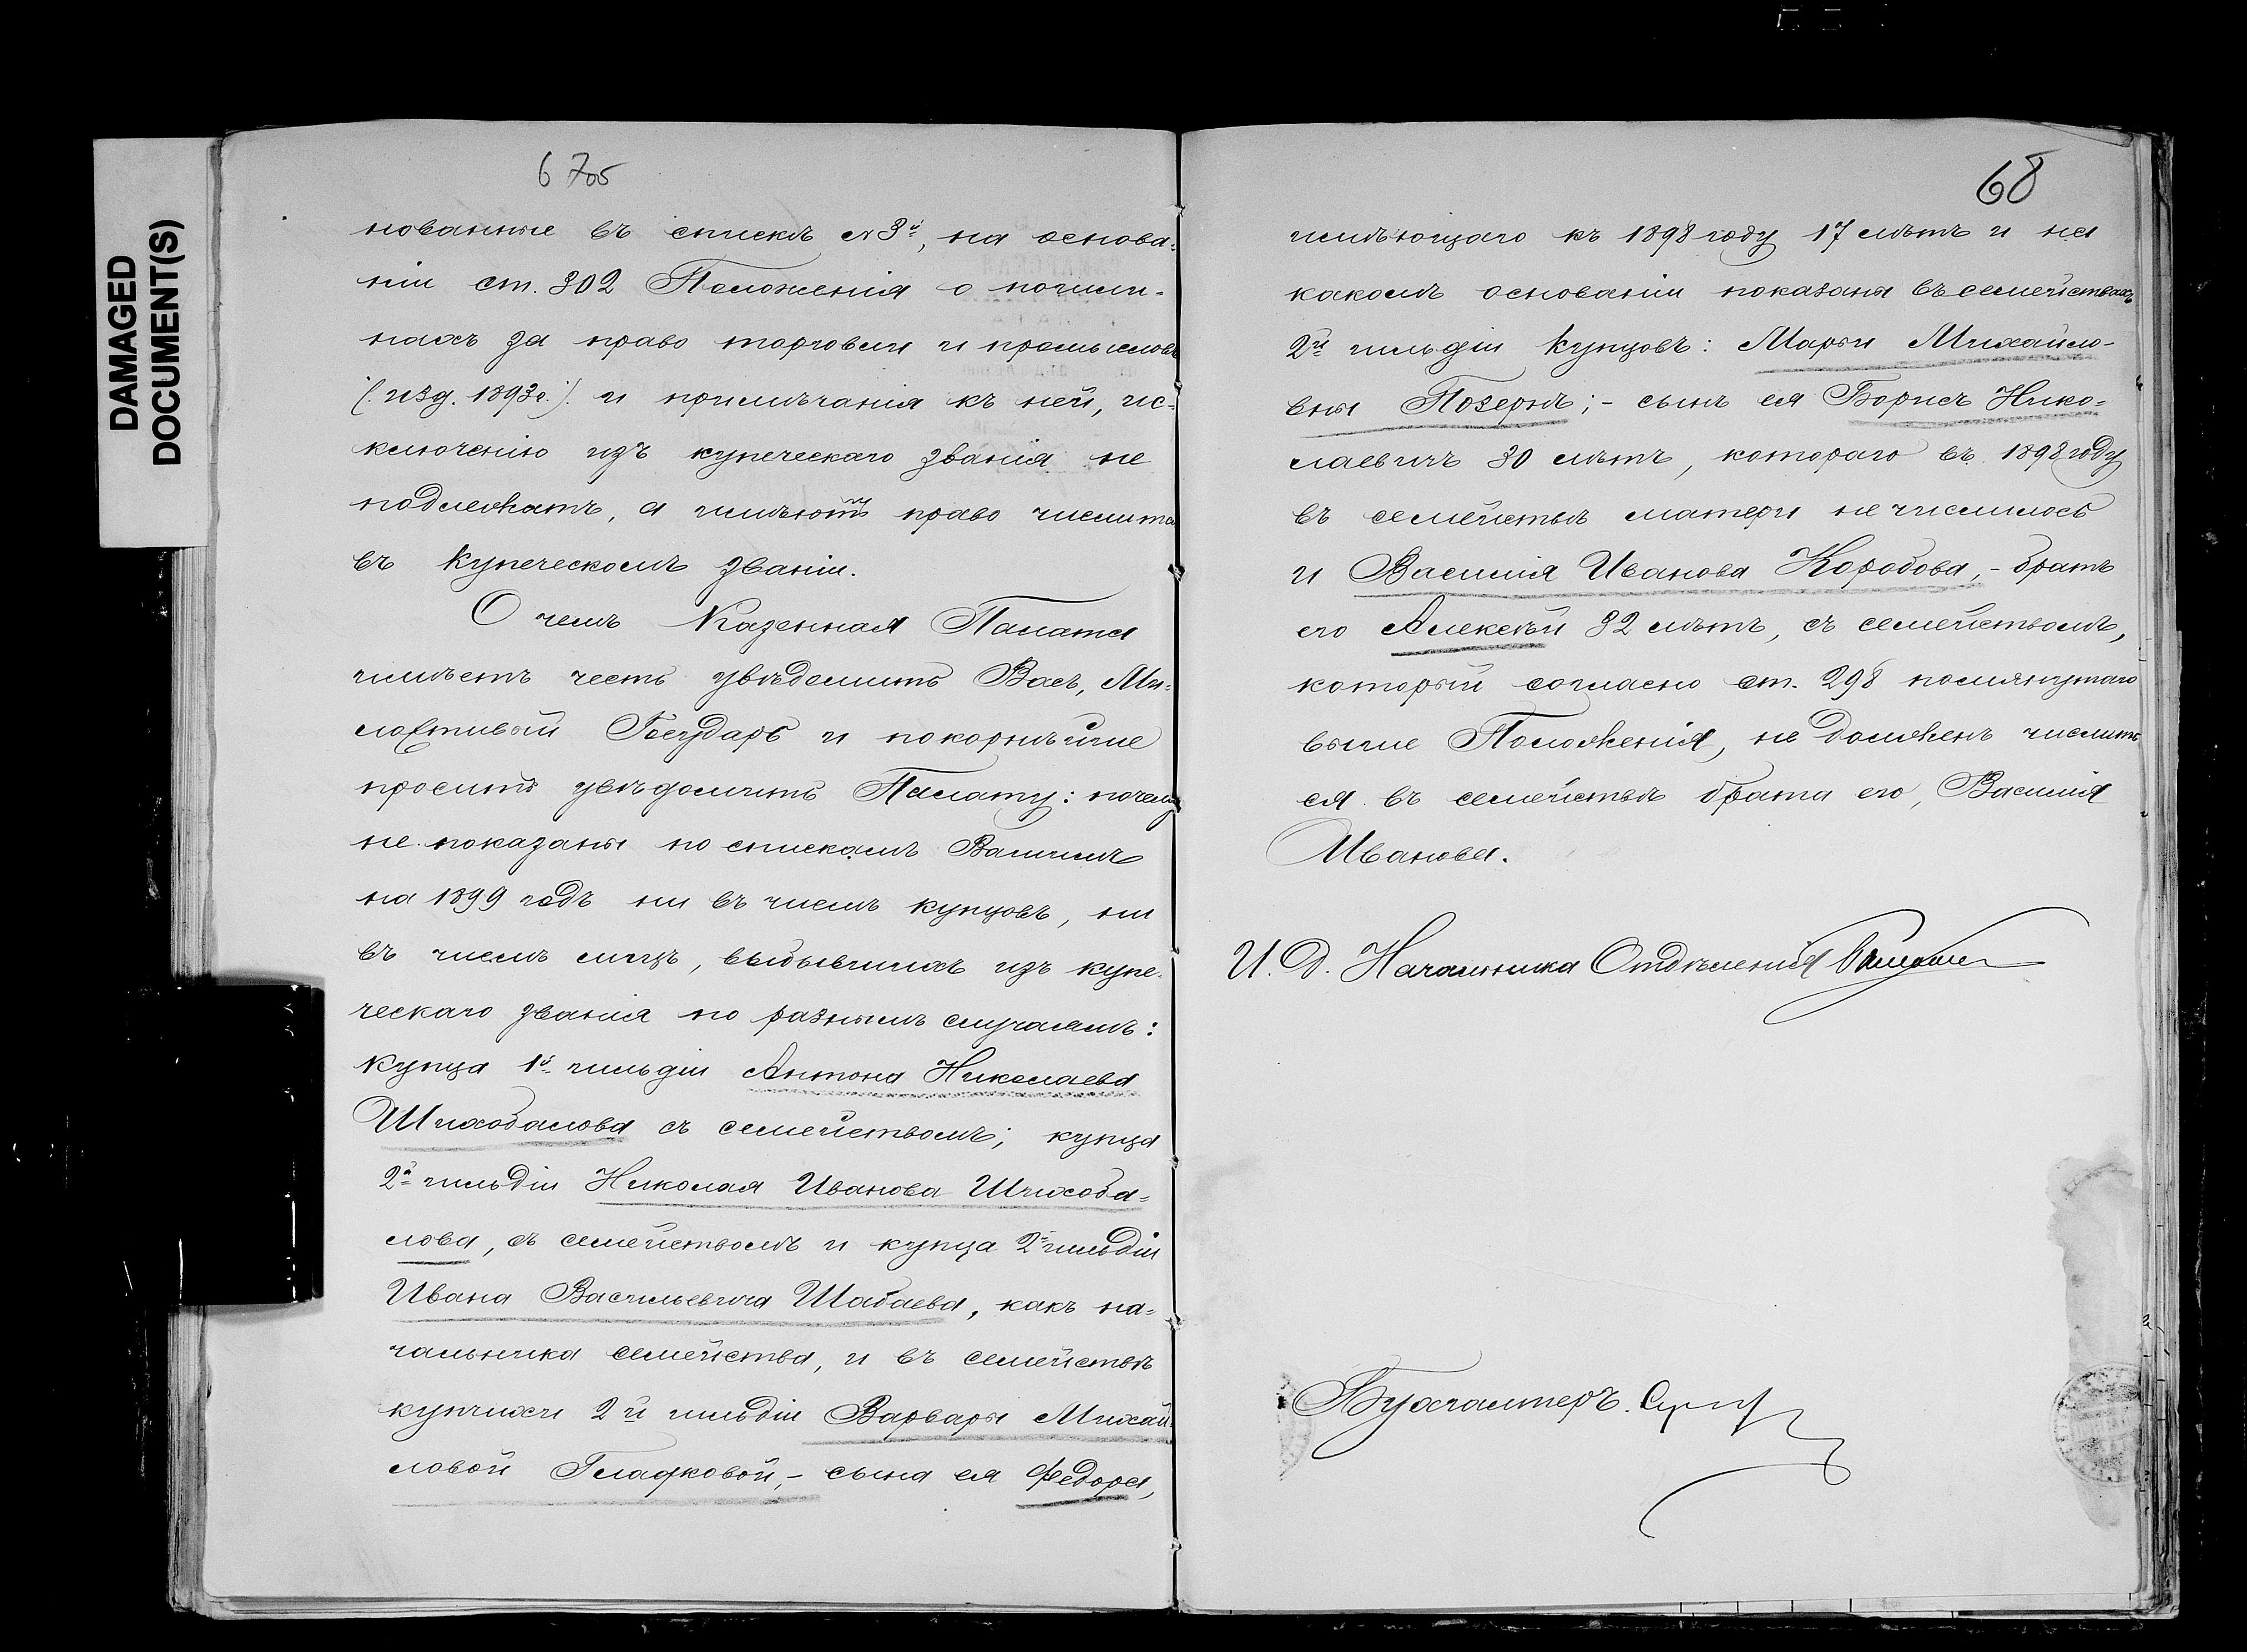 DAMAGED
DOCUMENT(S)
67об
нованные въ спискѣ № 3й, на основа-
ніи ст. 302 Положенія о пошли-
нахъ за право торговли и промысловъ
(изд. 1893г.) и примѣчанія къ ней, ис-
ключенію изъ купеческаго званія не
подлежатъ, а имѣютъ право числиться
въ купеческомъ званіи.
О чемъ Казенная Палата
имѣетъ честь увѣдомить Васъ, Ми-
лостивый Государь и покорнѣйше
проситъ увѣдомить Палату: почему
не показаны по спискамъ Вашимъ
на 1899 годъ ни въ числѣ купцовъ, ни
въ числѣ лицъ, выбывшихъ изъ купе-
ческаго званія по разнымъ случаямъ:
купца 1й гильдіи Антона Николаева
Шихобалова съ семействомъ; купца
2й гильдіи Николая Иванова Шихоба-
лова, съ семействомъ и купца 2й гильдіи
Ивана Васильевича Шабаева, какъ на-
чальника семейства, и въ семействѣ
купчихи 2й гильдіи Варвары Михай-
ловой Гладковой, - сына ея Федора,
68
имѣющаго къ 1898 году 17 лѣтъ и на
какомъ основаніи показаны въ семействахъ
2й гильдіи купцовъ: Марьи Михайло-
вны Позернъ; - сынъ ея Борисъ Нико-
лаевичъ 30 лѣтъ, котораго въ 1898 году
въ семействѣ матери не числилось
и Василія Иванова Коробова, - братъ
его Алексѣй 32 лѣтъ, съ семействомъ,
который согласно ст. 298 помянутаго
выше Положенія, не долженъ числить
ся въ семействѣ брата его, Василія
Иванова.
И. Д. Начальника Отдѣленія
Бухгалтеръ.